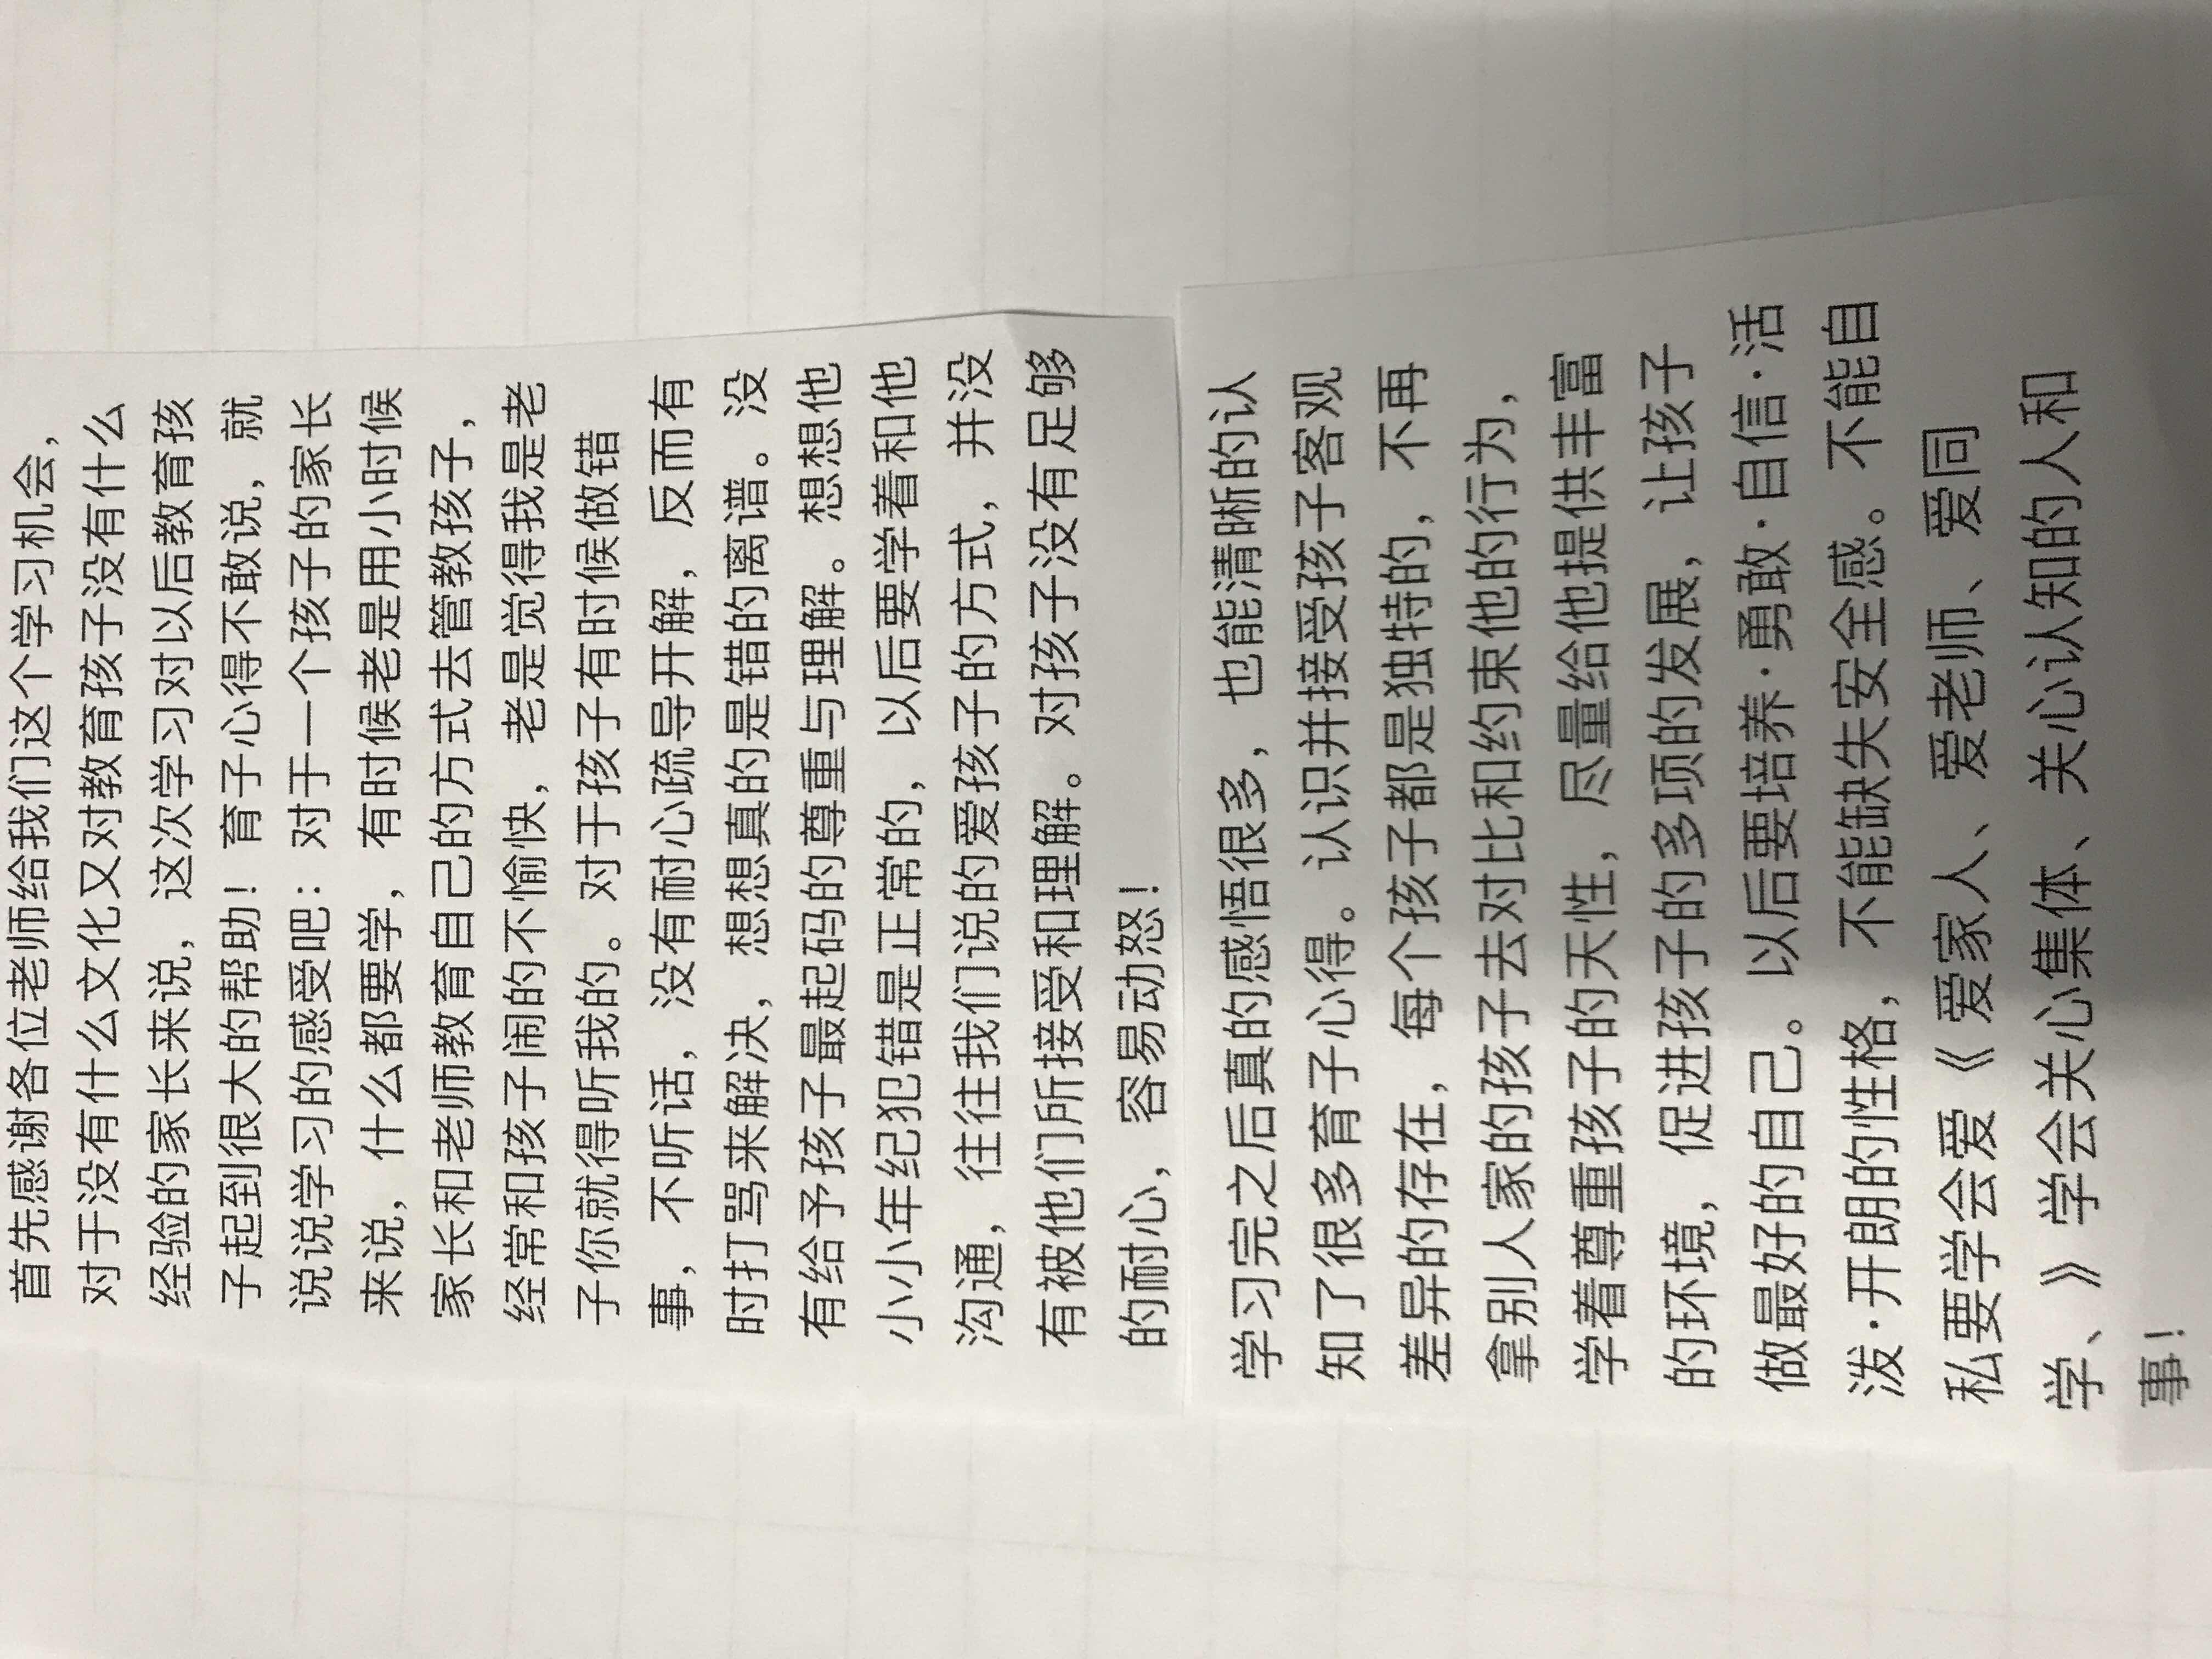 首先感谢各位老师给我们这个学习机会，
对于没有什么文化又对教育孩子没有什么
经验的家长来说，这次学习对以后教育孩
子起到很大的帮助！育子心得不敢说，就
说说学习的感受吧：对于一个孩子的家长
来说，什么都要学，有时候老是用小时候
家长和老师教育自己的方式去管教孩子，
经常和孩子闹的不愉快，老是觉得我是老
子你就得听我的。对于孩子有时候做错
事，不听话，没有耐心疏导开解，反而有
时打骂来解决，想想真的是错的离谱。没
有给予孩子最起码的尊重与理解。想想他
小小年纪犯错是正常的，以后要学着和他
沟通，往往我们说的爱孩子的方式，并没
有被他们所接受和理解。对孩子没有足够
的耐心，容易动怒！
学习完之后真的感悟很多，也能清晰的认
知了很多育子心得。认识并接受孩子客观
差异的存在，每个孩子都是独特的，不再
拿别人家的孩子去对比和约束他的行为，
学着尊重孩子的天性，尽量给他提供丰富
的环境，促进孩子的多项的发展，让孩子
做最好的自己。以后要培养·勇敢·自信·活
泼·开朗的性格，不能缺失安全感。不能自
私要学会爱《爱家人、爱老师、爱同
学、》学会关心集体、关心认知的人和
事！